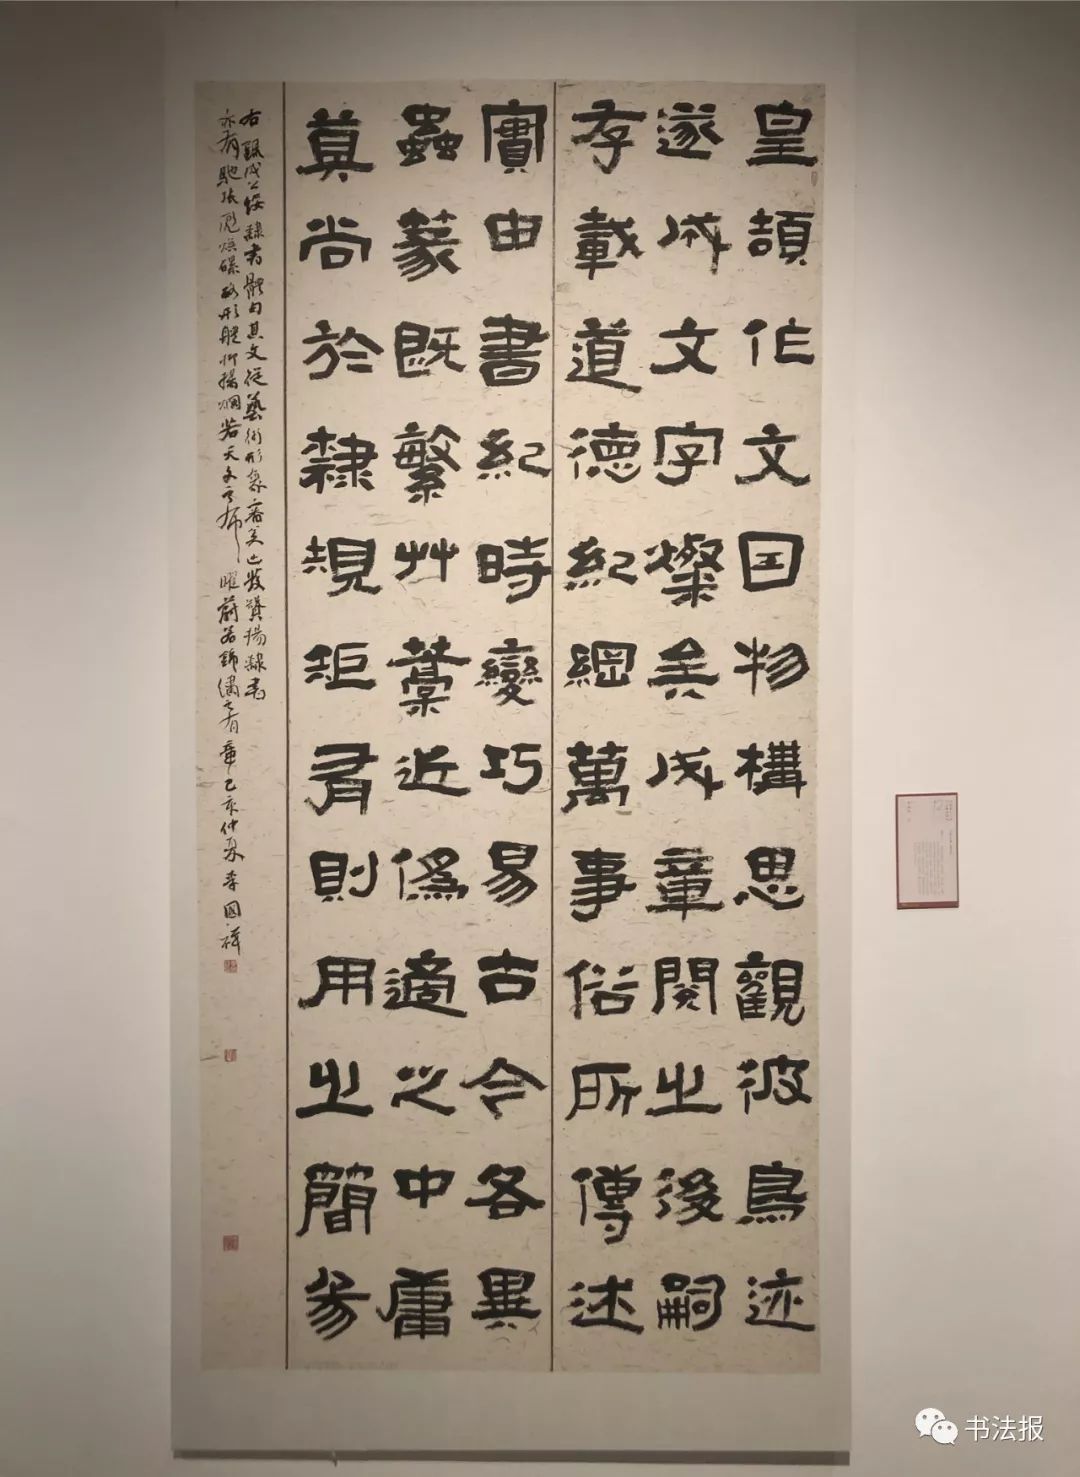 皇頡作文因物構思觀彼鳥迹
遂成文字燦矣成章閱之後嗣
存載道德紀綱萬事俗所傳述
實由書紀時變巧易古今各異
蟲篆既繁艸藁近僞適之中庸
莫尚於隸規矩有則用之簡易
右錄成公綏隸書體句其文從藝術形象審美出發贊揚隸書
亦有馳張彪煥磥硌形體抑揚爛若天文之布曜蔚若錦繡之有章己亥仲夏李國祥
书法报